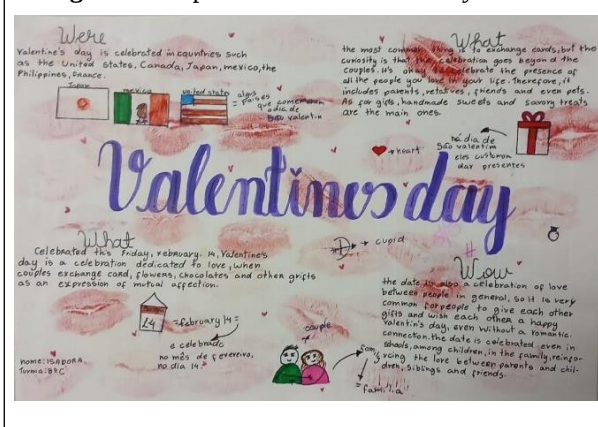 Were
Valentine's day is celebrated in countries such
as the United States, Canada, Japan, mexico, the
Philippines, France.
Japan
mexico
united states
= alguns
países
que comemoram
o dia de
São valentin
What
the most common thing is to exchange cards, but the
curiosity is that the celebration goes beyond the
couples. it's okay to celebrate the presence of
all the people you love in your life. Therefore, it
includes parents, relatives, friends and even pets.
As for gifts, handmade sweets and savory treats
are the main ones.
→ heart
no dia de
São valentim
eles custumam
dar presentes
Valentines day
What
Celebrated this Friday, February 14, Valentine's
day is a celebration dedicated to love, when
couples exchange card, flowers, chocolates and other grifts
as an expression of mutual affection.
→ cupid
14
=february 14=
e celebrado
no mês de fevereiro,
no dia 14
Wow
the date is also a celebration of love
between people in general, so it is very
common for people to give each other
gifts and wish each other a happy
Valentin's day, even without a romantic
connection. the date is celebrated even in
schools, among children, in the family, reinfor-
cing the love between parents and chil-
dren, siblings and friends.
couple
family
= família
nome: ISADORA
Turma: 8ºC